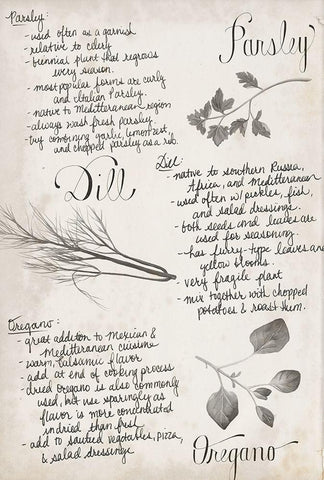 Parsley:
- used often as a garnish
- relative to celery
- biennial plant that regrows
every season.
- most popular forms are curly
and Italian Parsley.
- native to Mediterranean region
- always wash fresh parsley.
- try combining garlic, lemon zest,
and chopped parsley as a rub.
Parsley
Dill
Dill:
- native to southern Russia,
Africa, and Mediterranean
- used often w/ pickles, fish,
and salad dressings.
- both seeds and leaves are
used for seasoning.
- has flurry-type leaves and
yellow blooms.
- very fragile plant
- mix together with chopped
potatoes & roast them.
Oregano:
- great addition to Mexican &
Mediterranean cuisine
- warm, balsamic flavor
- add at end of cooking process
- dried oregano is also commonly
used, but use sparingly as
flavor is more concentrated
in dried than fresh
- add to sautéed vegetables, pizza,
& salad dressings
Oregano